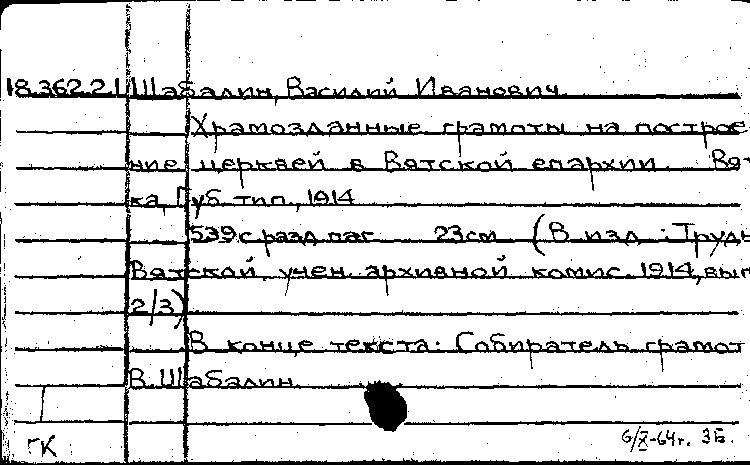 18.362.2.1 Шабалин, Василий Иванович.
Храмозданные грамоты на построе
ние церквей в Вятской епархии. Вят
ка, Губ. тип., 1914
539с.разд.паг. 23см (В изд.: Труды
Вятской учен. архивной комис. 1914, вып.
2/3)
В конце текста: Собиратель грамот
В. Шабалин.
ГК
6/X-64г. ЗБ.